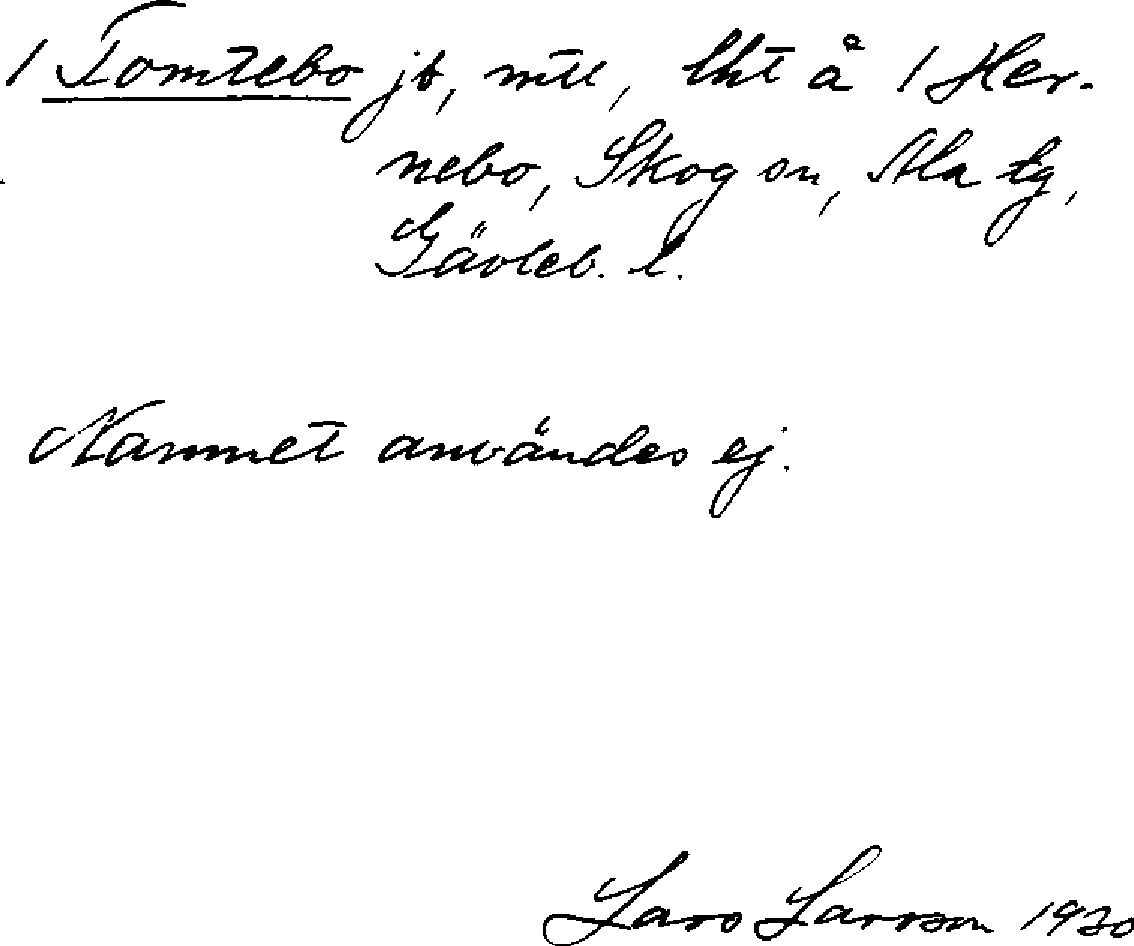 / Tomtebo jb, mtl, lht å / Her-
nebo, Skog sn, Ala tg,
Gävleb. l.
Namnet användes ej.
Lars Larsson 1930